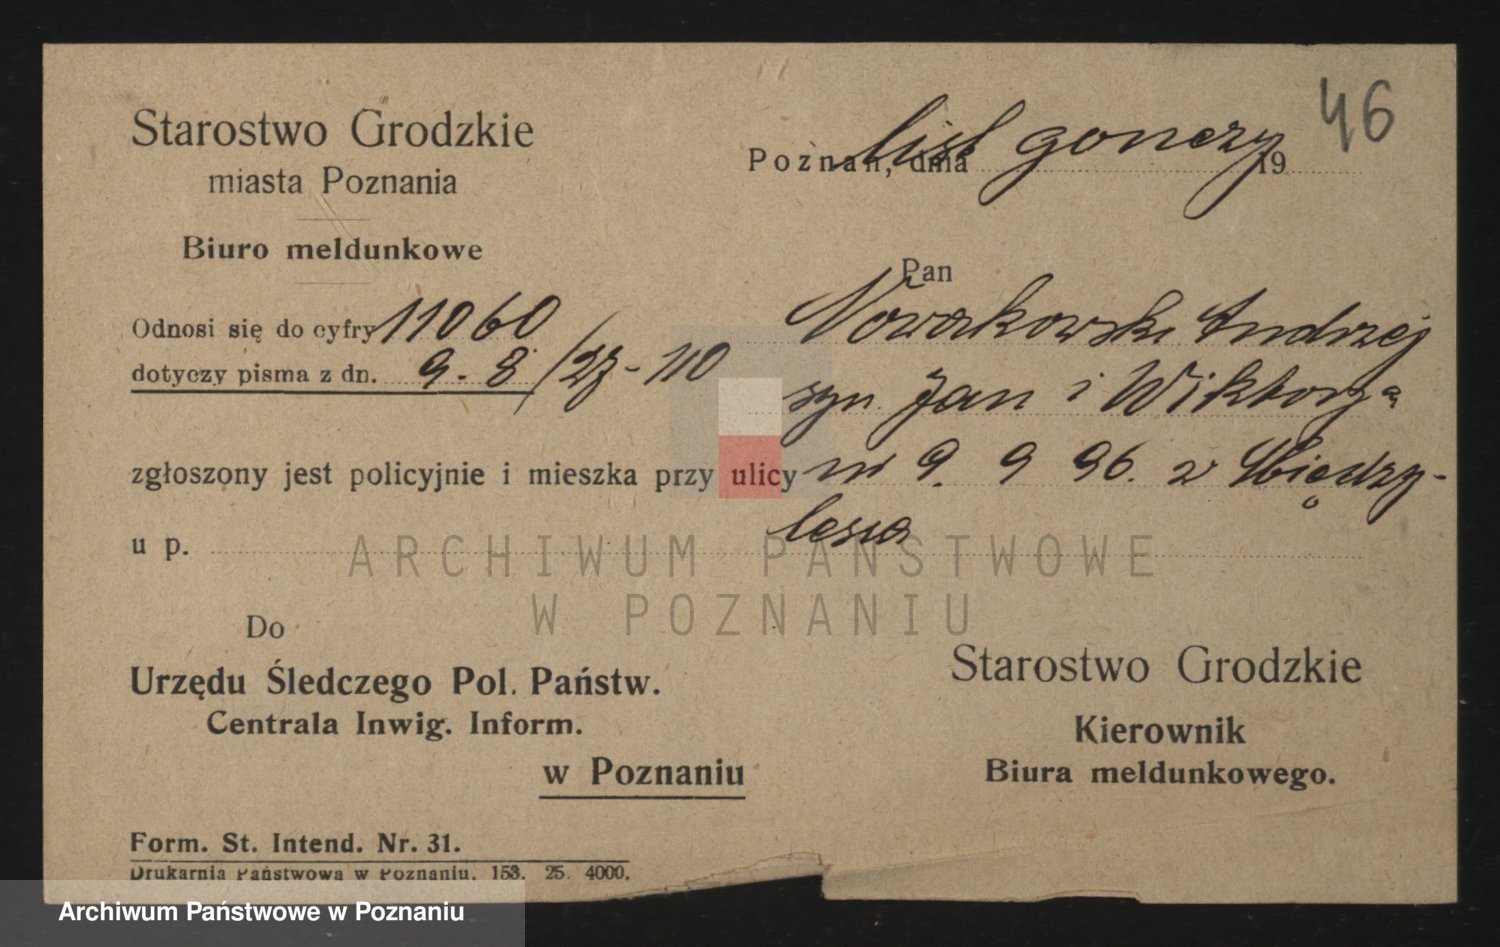 46
Starostwo Grodzkie
miasta Poznania
Biuro meldunkowe
Poznań, dnia list gonczy 19
Pan
Odnosi się do cyfry 11060
dotyczy pisma z dn. 9. 8. /27 - 110
Nowakowski Andrzej
syn Jan i Wiktorją
zgłoszony jest policyjnie i mieszka przy ulicy ur 9. 9 96. w Między-
lesia
u p.
ARCHIWUM PAŃSTWOWE
W POZNANIU
Do
Urzędu Śledczego Pol. Państw.
Centrala Inwig. Inform.
w Poznaniu
Starostwo Grodzkie
Kierownik
Biura meldunkowego.
Form. St. Intend. Nr. 31.
Drukarnia Państwowa w Poznaniu. 153. 25. 4000.
Archiwum Państwowe w Poznaniu